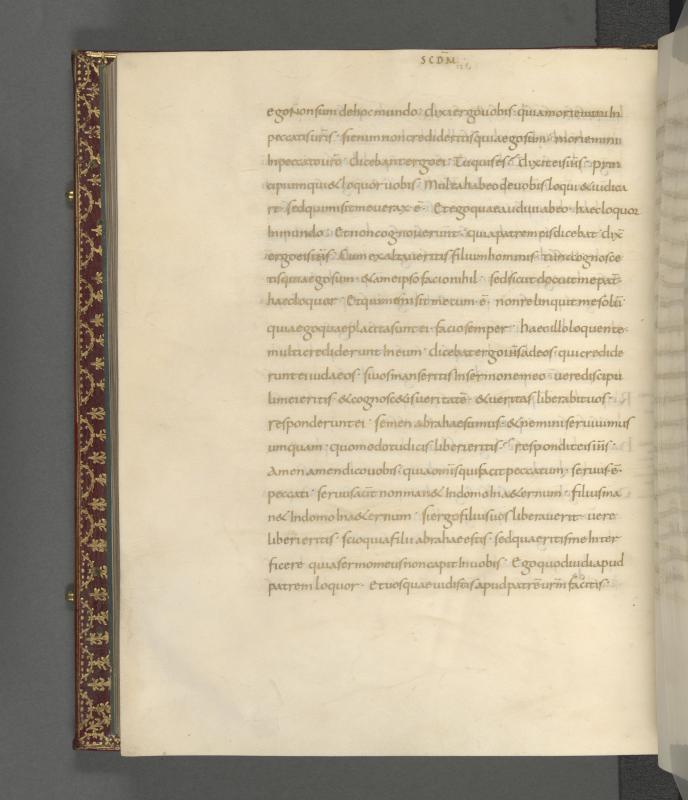 SCDM
ego non sum de hoc mundo · dixi ergo uobis · quia moriemini In
peccatis uris · si enim non credideritis quia ego sum · moriemini
In peccato uro · Dicebant ergo ei · Tu quis es · Dixit eis ihs · prin
cipium qui & loquor uobis · Multa habeo de uobis loqui & iudica
re · sed qui misit me uerax ē · Et ego quae audiui ab eo · haec loquor
In mundo · Et non cognouerunt · quia patrem eis dicebat · dix
ergo eis ihs · Cum exaltaueritis filium hominis · tunc cognosce
tis quia ego sum · & a me ipso facio nihil · sed sicut docuit me pat
haec loquor · Et qui me misit mecum ē · non relinquit me solū
quia ego quae placita sunt ei · facio semper · haec illo loquente
multi crediderunt In eum · dicebat ergo ihs ad eos · qui credide
runt ei iudaeos · si uos manseritis In sermone meo · uere discipu
li mei eritis · & cognosc&is ueritatē · & ueritas liberabit uos ·
responderunt ei · semen abrahae sumus · & nemini seruiuimus
umquam · quomodo tu dicis liberi eritis · Respondit eis ihs ·
Amen amen dico uobis · quia omnis qui facit peccatum · seruus ē ·
peccati · seruus aut non man& In domo In a&ernum · filius ma
n& In domo In a&ernum · si ergo filius uos liberauerit · uere
liberi eritis · scio quia filii abrahae estis · sed quaeritis me Inter
ficere · quia sermo meus non capit In uobis · Ego quod uidi apud
patrem loquor · Et uos quae uidistis apud patrē urm facitis ·